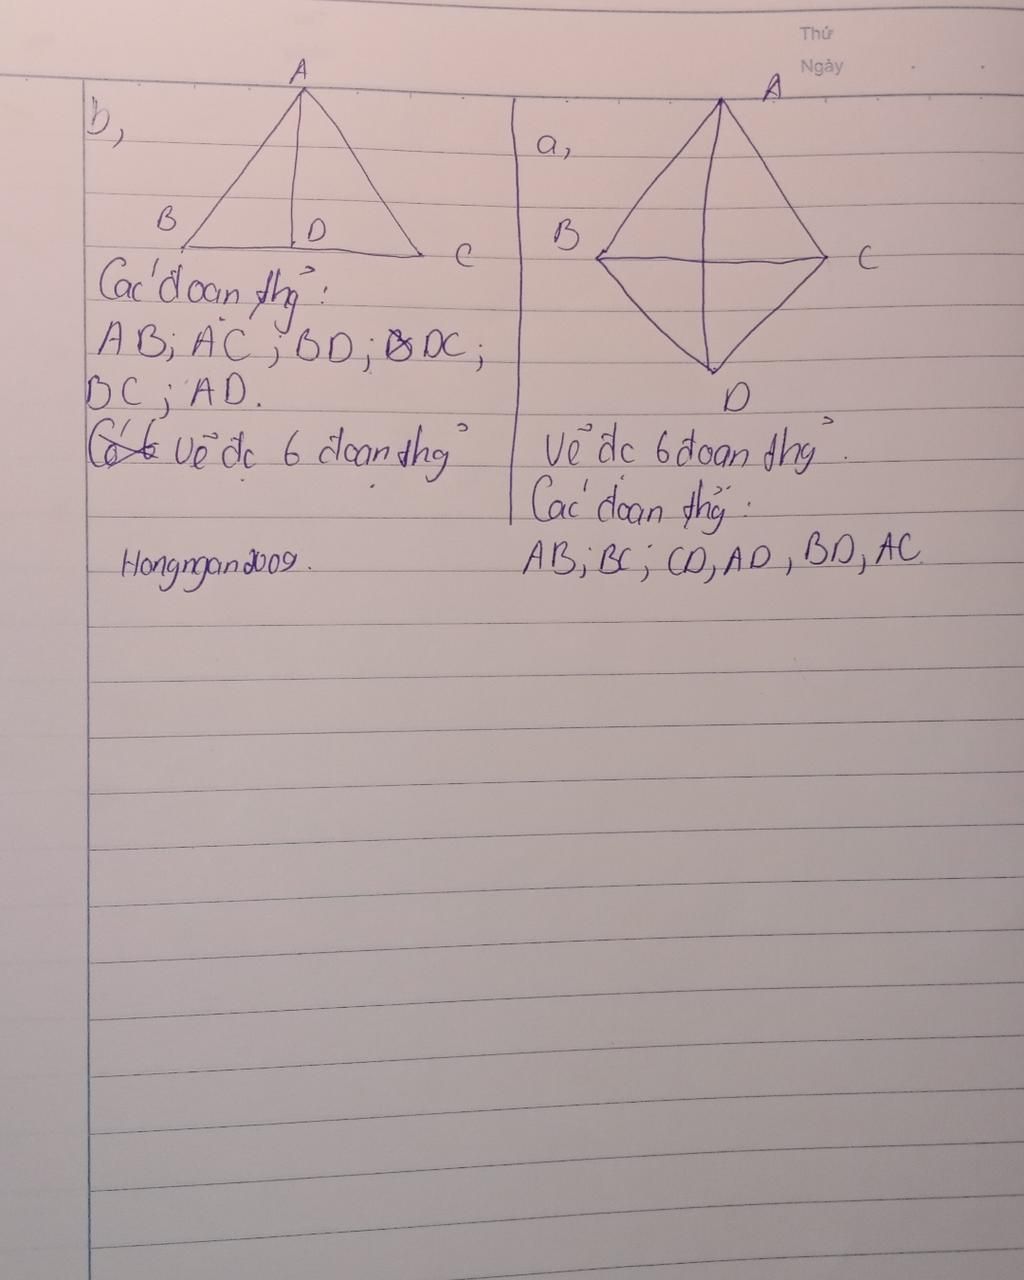 Thứ
Ngày
b,
A
B
D
C
Các đoạn thẳg:
AB; AC; BD; DC;
BC; AD.
vẽ đc 6 đoạn thẳg
Hongngan2009.
a,
A
B
C
D
Vẽ đc 6 đoạn thẳg.
Các đoạn thẳg:
AB; BC; CD, AD, BD, AC